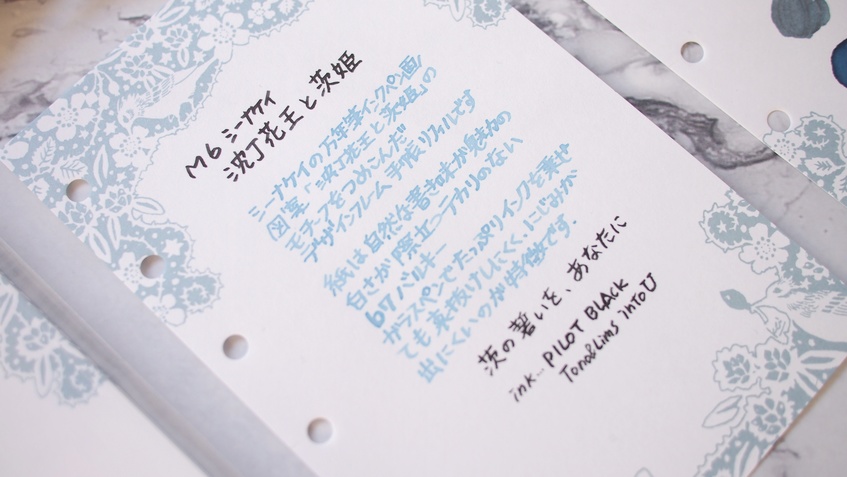 M6 シーナケイ
沈丁花王と茨姫
シーナケイの万年筆インクペン画/
図案「沈丁花王と茨姫」の
モチーフをつめこんだ
デザインフレーム 手帳リフィルです
紙は自然な書き味が魅力の
白さが際立つテカリのない
b7バルキー
ガラスペンでたっぷりインクを乗せ
ても裏抜けしにくく、にじみが
出にくいのが特徴です.
茨の誓いを、あなたに
ink… PILOT BLACK
Tono&Lims intoU